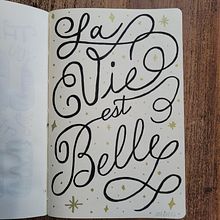 La
Vie
est
Belle